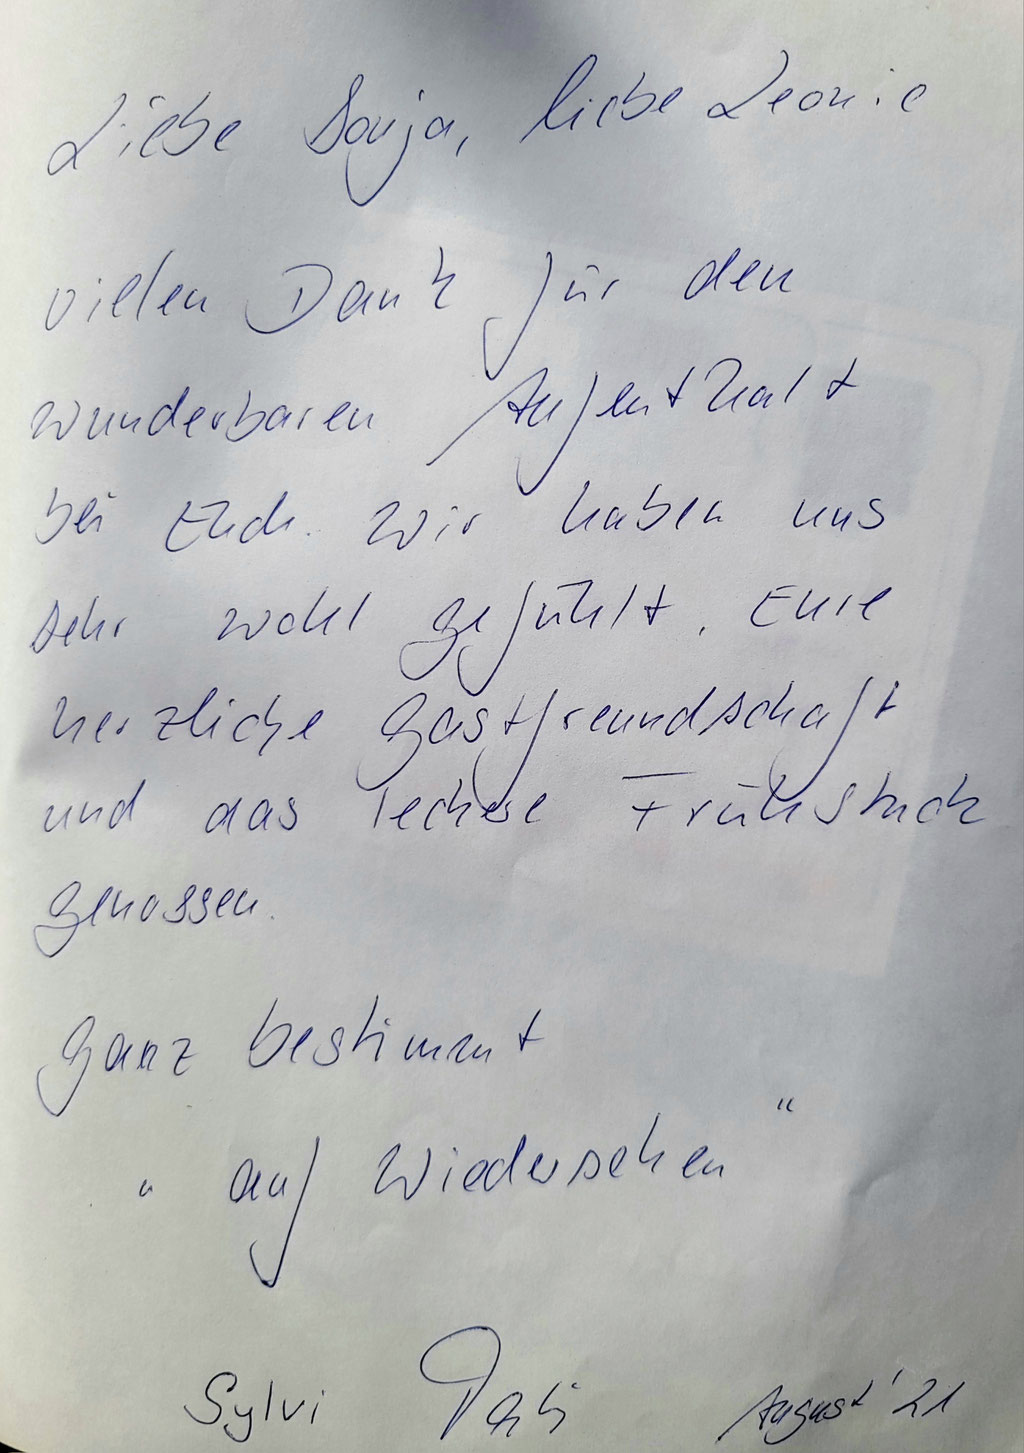 Liebe Sonja, liebe Leonie
vielen Dank für den
wunderbaren Aufenthalt
bei Euch. Wir haben uns
sehr wohl gefühlt. Eure
herzliche Gastfreundschaft
und das leckere Frühstück
genossen.
Ganz bestimmt
" auf Wiedersehen "
Sylvi August '21